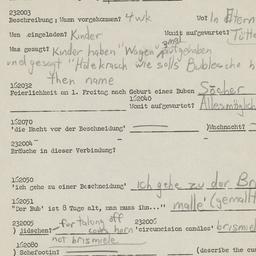 232003
Beschreibung: Wann vorgekommen? 4 wk Wo? In Eltern
Wen eingeladen? Kinder Womit aufgewartet? Tütte
Was gesagt? Kinder haben "Wagen" 3mal aufgehoben
und gesagt "Holekrasch wie solls Bubleche h
then name
162032
Feierlichkeit an 1. Freitag nach Geburt eines Buben Söcher
162040
Womit aufgewartet? Allesmöglich
162070
'die Nacht vor der Beschneidung' )Wachnacht?
232004
Bräuche in dieser Verbindung?
162050
'ich gehe zu einer Beschneidung' ich gehe zu dor Br
162051
"Der Bub' ist 8 Tage alt, man muss ihn..." malle (gemallt
232005 for taking off 232006
) Jüdschen? horn 'circumcision candles' brismile
not brismiele
162080
) Schefootin? (describe the cu